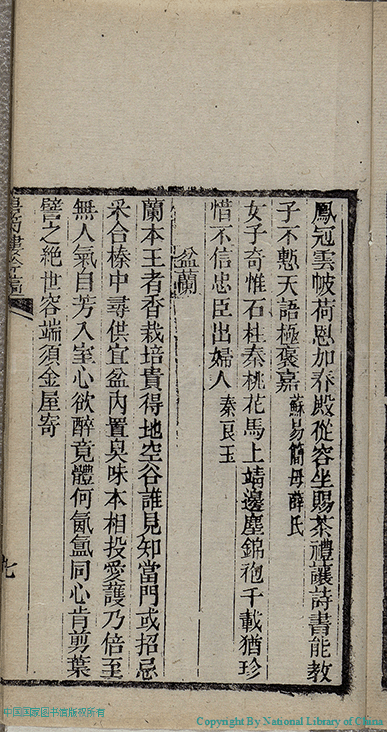 鳳冠雲帔荷恩加春殿從容坐賜茶禮讓詩書能教
子不慙天語極褒嘉 蘇易簡母薛氏
女子奇惟石柱秦桃花馬上靖邊塵錦袍千載猶珍
惜不信忠臣出婦人 秦良玉
盆蘭
蘭本王者香栽培貴得地空谷誰見知當門或招忌
采合榛中尋供宜盆內置臭味本相投愛護乃倍至
無人氣自芳入室心欲醉竟體何氤氳同心肯剪葉
譬之絕世容端須金屋寄
七
中国国家图书馆版权所有
Copyright By National Library of China